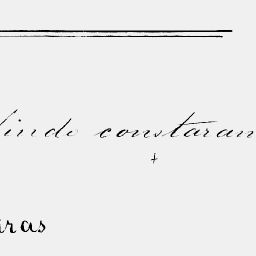 linde constaran
ras